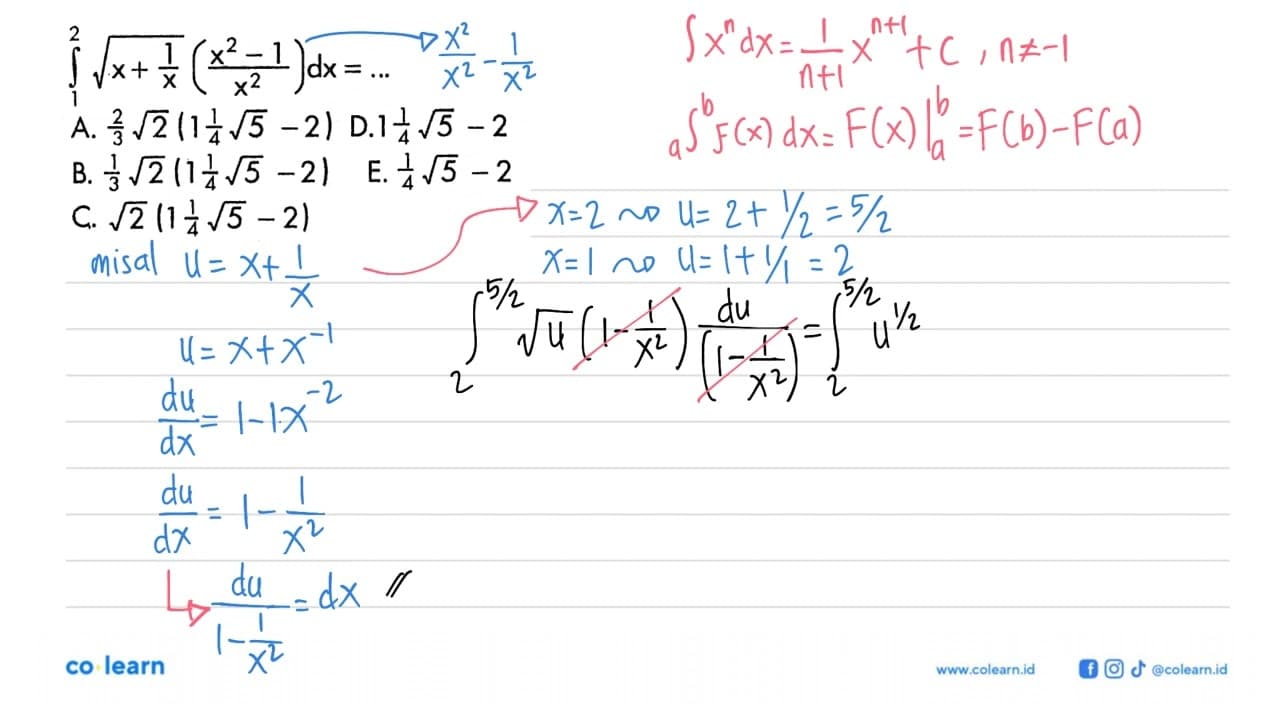 ∫₁² √(x + 1/x) ((x² − 1)/x²) dx = ... x²/x² − 1/x²
A. 2/3 √2 (1 1/4 √5 − 2) D. 1 1/4 √5 − 2
B. 1/3 √2 (1 1/4 √5 − 2) E. 1/4 √5 − 2
C. √2 (1 1/4 √5 − 2)
∫xⁿ dx = 1/(n+1) xⁿ⁺¹ + C , n ≠ −1
ₐ∫ᵇ F(x) dx = F(x)|ₐᵇ = F(b) − F(a)
misal u = x + 1/x
x = 2 ~> u = 2 + 1/2 = 5/2
x = 1 ~> u = 1 + 1/1 = 2
u = x + x⁻¹
du/dx = 1 − 1.x⁻²
du/dx = 1 − 1/x²
du/(1 − 1/x²) = dx //
∫₂^(5/2) √u (1 − 1/x²) du/(1 − 1/x²) = ∫₂^(5/2) u^(1/2)
co learn
www.colearn.id
@colearn.id